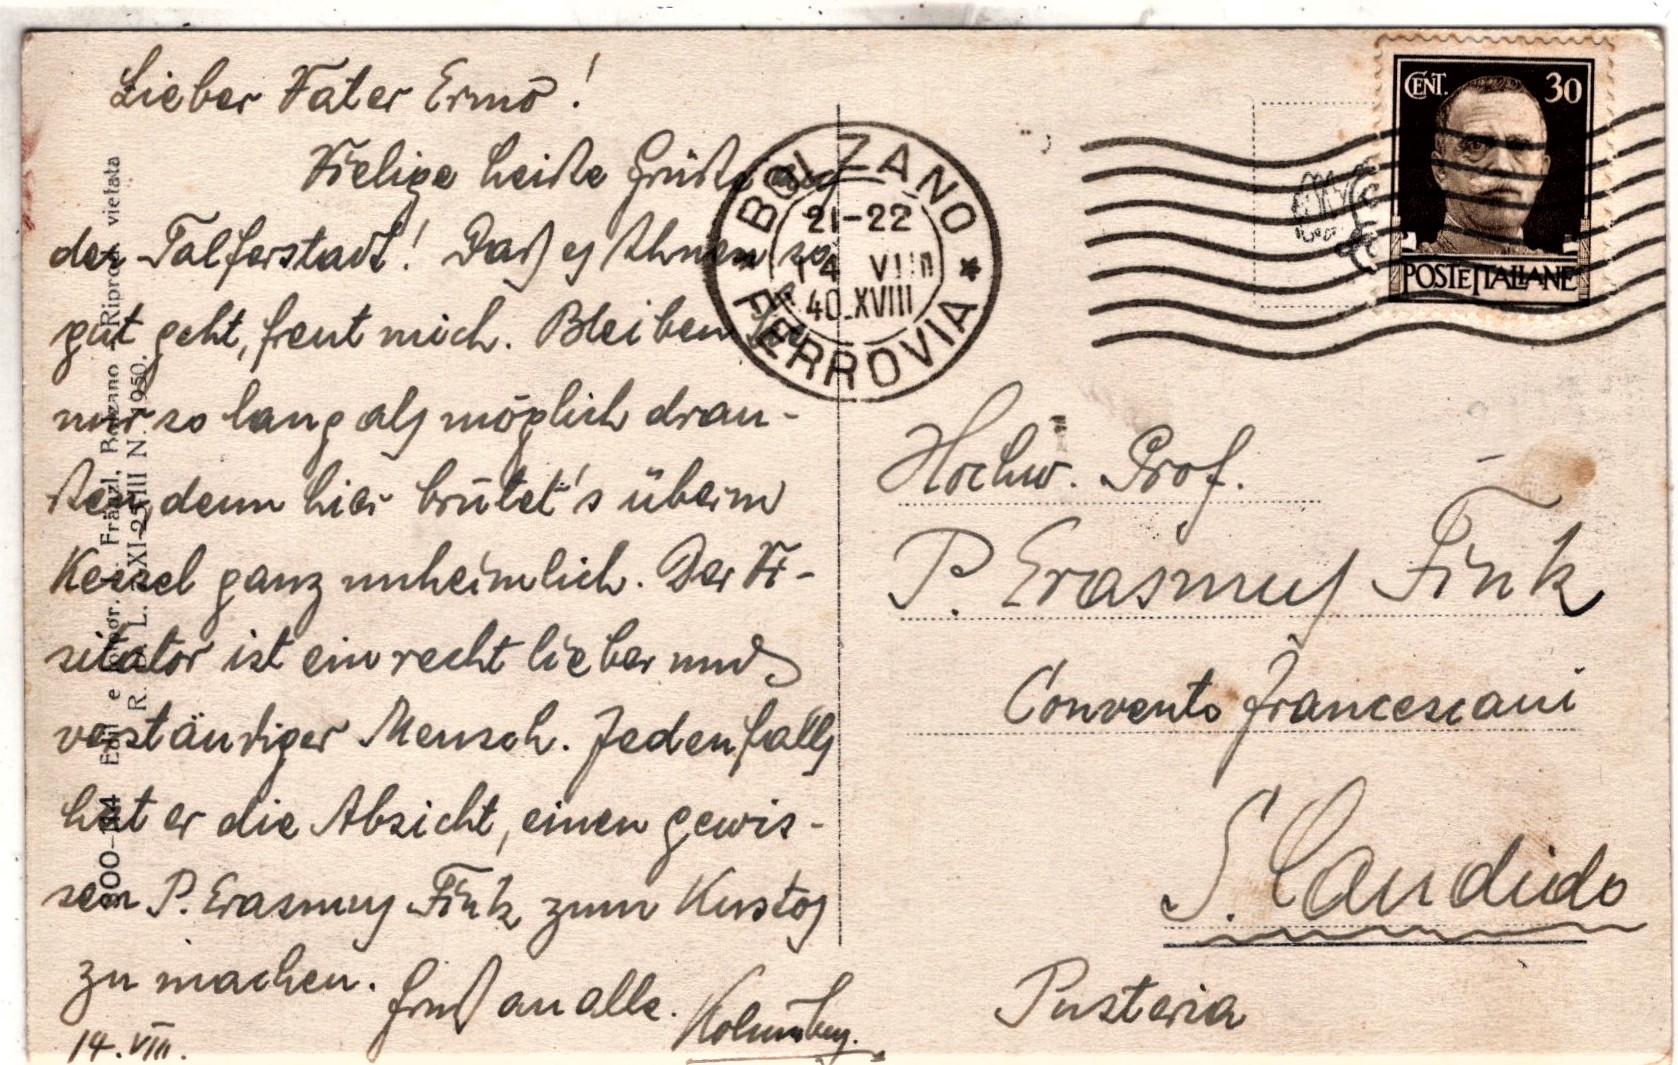 Lieber Vater Ermo!
Vielige heiße Grüße aus
der Talferstadt! Daß es Ihnen so
gut geht, freut mich. Bleiben Sie
nur so lang als möglich drau-
ßen, denn hier brütet's überm
Kessel ganz unheimlich. Der Vi-
sitator ist ein recht lieber und
verständiger Mensch. Jedenfalls
hat er die Absicht, einen gewis-
sen P. Erasmus Fink zum Kustos
zu machen. Gruß an alle. Kolumban.
14.VIII.
300-114 Ediz. e fotogr. L. Fränzl, Bolzano - Riprod. vietata
R. DAL. 2-XI-25-III N. 1950.
BOLZANO
21-22
14 VIII
40.XVIII
FERROVIA
CENT. 30
POSTE ITALIANE
Hochw. Prof.
P. Erasmus Fink
Convento Francescani
S. Candido
Pusteria